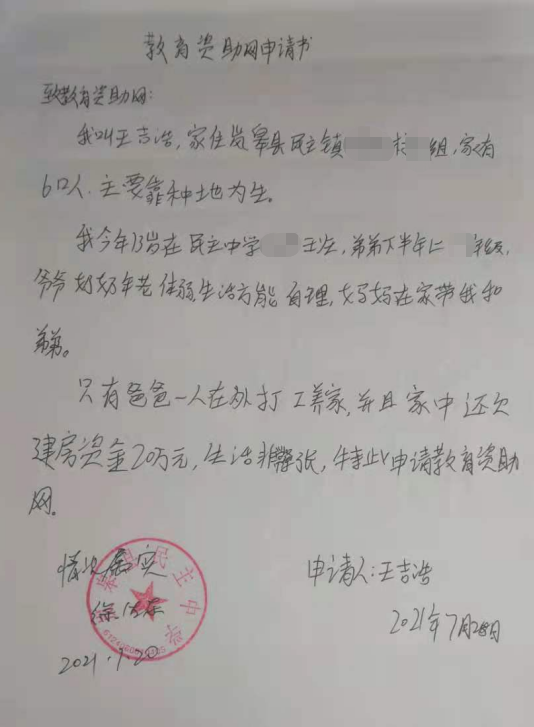 教育资助网申请书
致教育资助网:
我叫王吉浩,家住岚皋县民主镇 村 组,家有
6口人,主要靠种土地为生。
我今年13岁在民主中学 上,弟弟下半年上 年级,
爷爷奶奶年老体弱,生活方能自理,妈妈在家带我和
弟弟。
只有爸爸一人在外打工养家,并且家中还欠
建房资金20万元,生活非常紧张,特此申请教育资助
网。
情况属实
申请人:王吉浩
2021年7月28日
2021.7.20